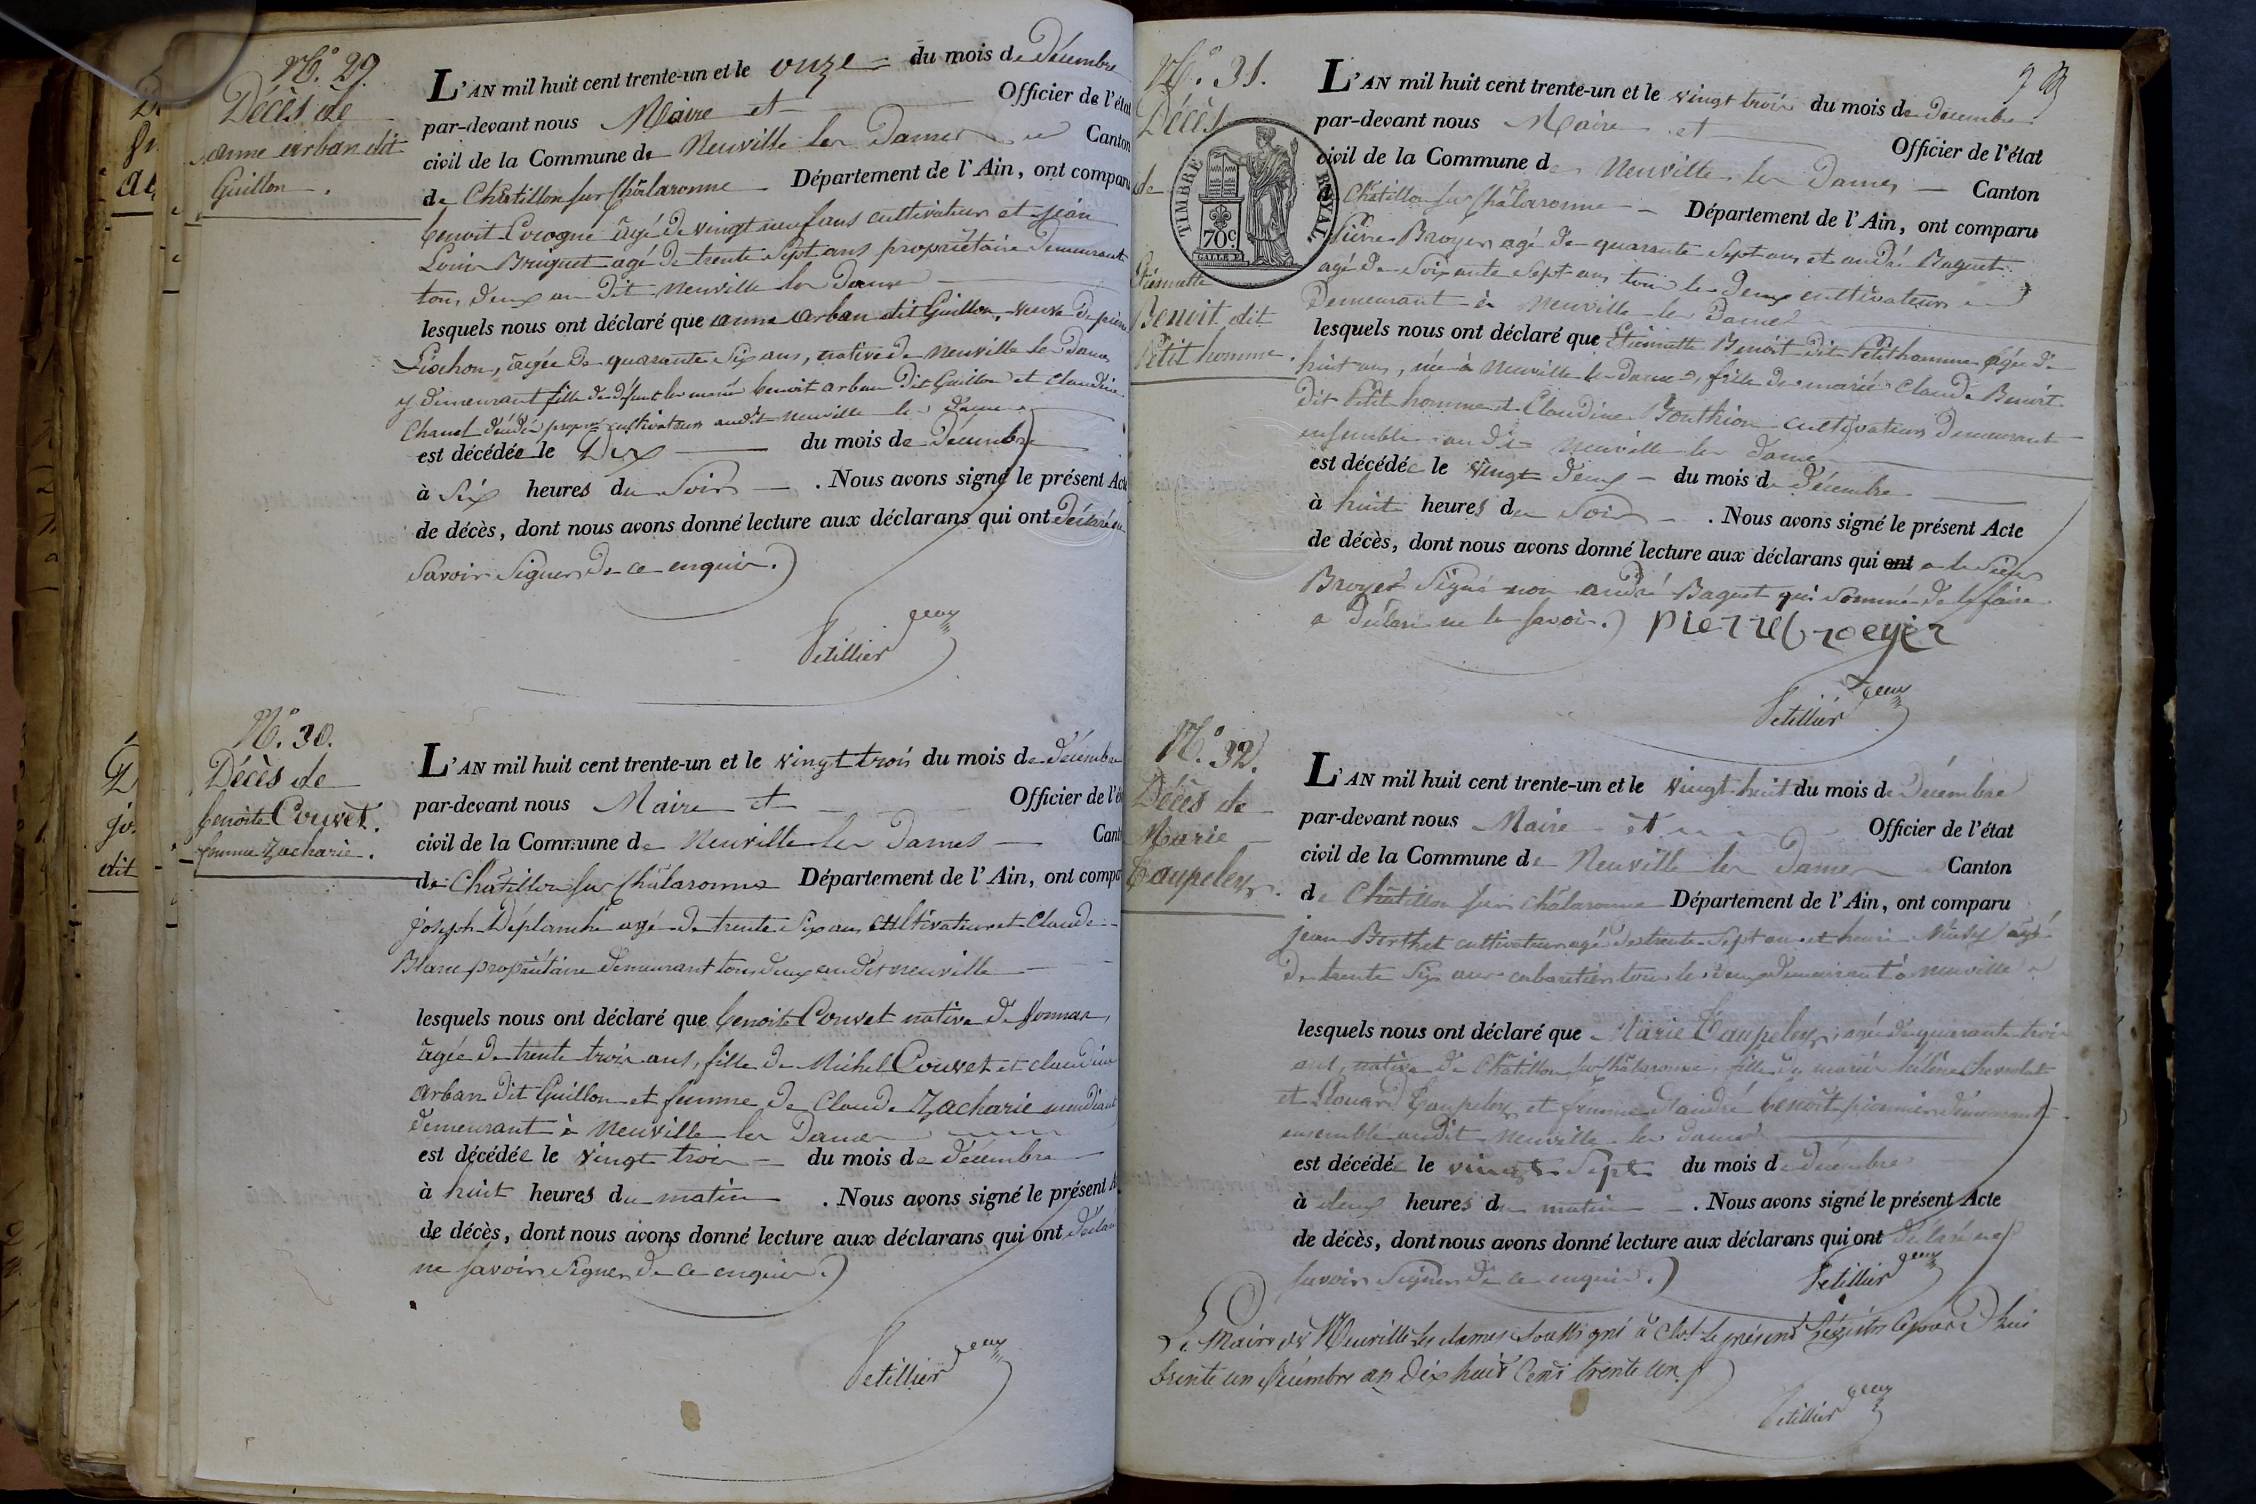 N.° 29.
Décès de
anne arban dit
Guillon.
L'AN mil huit cent trente-un et le onze du mois de Décembre
par-devant nous Maire et Officier de l'état
civil de la Commune de Neuville les Dames Canton
de Chatillon sur Chalaronne Département de l'Ain, ont comparu
benoit Cocogne âgé de vingt neuf ans cultivateur et jean
Louis Briquet agé de trente sept ans propriétaire demeurant
tous deux au dit neuville les Dames
lesquels nous ont déclaré que anne arban dit Guillon, veuve de pierre
Liochon, âgée de quarante six ans, native de neuville les Dames
y demeurant fille de défunt les mariés benoit arban dit Guillon et claudine
Chanel cultivateurs audit neuville les dames
est décédée le Dix du mois de Décembre
à Six heures du Soir . Nous avons signé le présent Acte
de décès, dont nous avons donné lecture aux déclarans qui ont Déclaré ne
savoir signer de ce enquis.
Petillier
N.° 30.
Décès de
benoite Couvet.
femme Zacharie.
L'AN mil huit cent trente-un et le vingt trois du mois de décembre
par-devant nous Maire et Officier de l'ét
civil de la Commune de Neuville les Dames Cant
de Châtillon sur Châlaronne Département de l'Ain, ont compar
joseph Déplanche agé de trente six ans cultivateur et Claude
Blanc propriétaire demeurant tous deux au dit neuville
lesquels nous ont déclaré que benoite Couvet native de
âgée de trente trois ans, fille de Michel Couvet et claudine
arban dit Guillon et femme de Claude Zacharie mendiant
demeurant à Neuville les Dames
est décédée le vingt trois du mois de décembre
à huit heures du matin . Nous avons signé le présent A
de décès, dont nous avons donné lecture aux déclarans qui ont déclaré
ne savoir signer de ce enquis.
Petillier
N.° 31.
Décès
de
TIMBRE ROYAL.
70c.
Etiennette
Benoit dit
Petit homme.
L'AN mil huit cent trente-un et le vingt trois du mois de décembre
par-devant nous Maire et Officier de l'état
civil de la Commune de Neuville les Dames Canton
de Châtillon sur Châlaronne Département de l'Ain, ont comparu
Pierre Broyer agé de quarante sept ans et andré Baguet
agé de soixante sept ans tous les deux cultivateurs
Demeurant à Neuville les Dames
lesquels nous ont déclaré que Etiennette Benoit dit Petit homme agée de
huit ans, née à Neuville les dames, fille des mariés Claude Benoit
dit Petit homme et Claudine Gonthion cultivateurs demeurant
ensemble au dit Neuville les dames
est décédée le vingt deux du mois de décembre
à huit heures du Soir . Nous avons signé le présent Acte
de décès, dont nous avons donné lecture aux déclarans qui ont a le sieur
Broyer signé non andré Baguet qui sommé de le faire
a déclaré ne le savoir. pierre broeyer
Petillier
N.° 32.
Décès de
Marie
Taupelex.
L'AN mil huit cent trente-un et le vingt huit du mois de décembre
par-devant nous Maire et Officier de l'état
civil de la Commune de Neuville les Dames Canton
de Châtillon sur châlaronne Département de l'Ain, ont comparu
jean Berthet cultivateur agé de trente sept ans et henri agé
de trente six ans cabaretier tous les deux demeurant à neuville
lesquels nous ont déclaré que Marie Taupelex, agée de quarante trois
ans, native de Châtillon sur Châlaronne, fille des mariés hélène
et Taupelex et femme d'andré benoît pionnier demeurant
ensemble audit Neuville les dames
est décédée le vingt Sept du mois de décembre
à deux heures du matin . Nous avons signé le présent Acte
de décès, dont nous avons donné lecture aux déclarans qui ont déclaré ne
savoir signer de ce enquis.
Petillier
Le Maire de Neuville les dames Soussigné a Clot le présent Régistre Cejourd'hui
trente un décembre an dix huit Cent trente un
Petillier